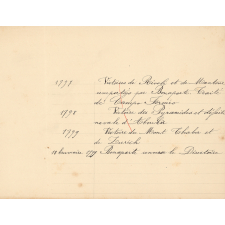 1797 Victoires de Rivoli et de Mantoue
remportées par Bonaparte Traité
de Campo Formio
1798 Victoire des Pyramides et défaite
navale d'Aboukir
1799 Victoire du Mont Thabor et
de Zurich
18 brumaire 1799 Bonaparte renverse le Directoire